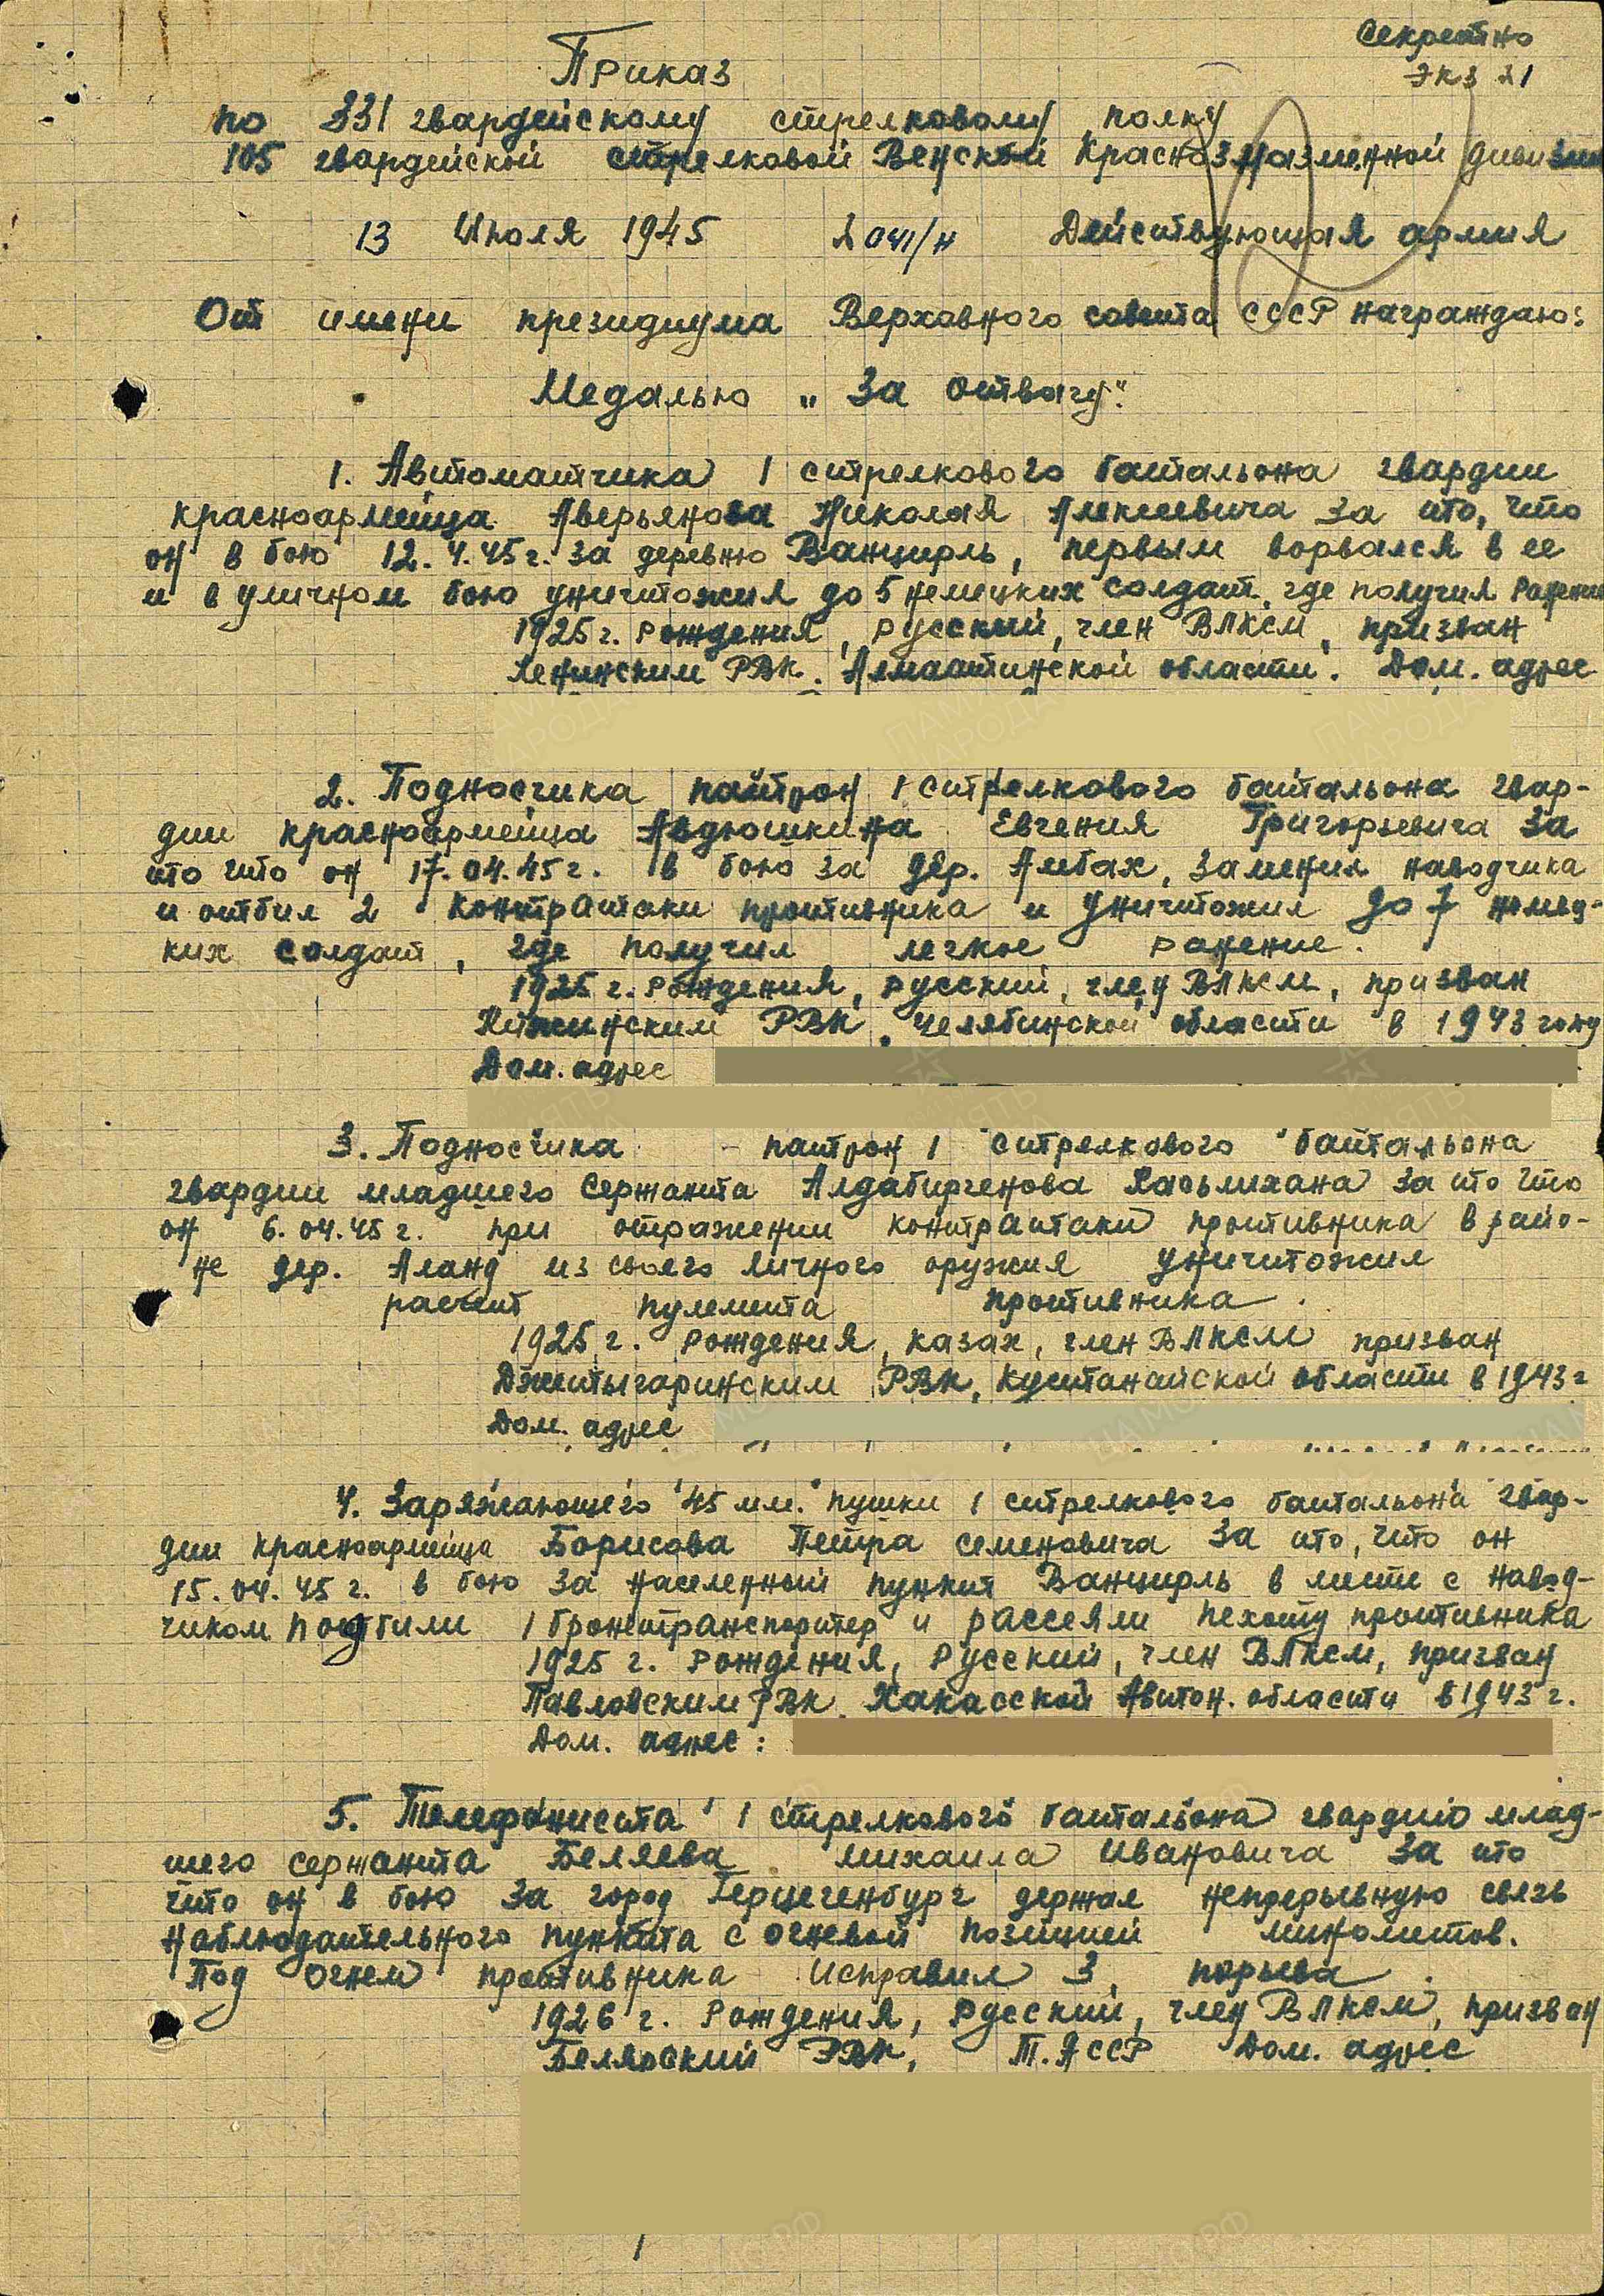 Секретно
Экз №1
Приказ
по 331 гвардейскому стрелковому полку
105 гвардейской стрелковой Венской Краснознаменной дивизии
13 Июля 1945 № 041/н Действующая армия
От имени президиума Верховного совета СССР награждаю:
Медалью „За отвагу".
1. Автоматчика 1 стрелкового батальона гвардии
красноармейца Аверьянова Николая Алексеевича за то, что
он в бою 12.4.45 г. за деревню Ванцирль, первым ворвался в ее
и в уличном бою уничтожил до 5 немецких солдат, где получил ранение
1925 г. рождения, русский, член ВЛКСМ, призван
Ленинским РВК. Алмаатинской области. Дом. адрес
2. Подносчика патрон 1 стрелкового батальона гвар-
дии красноармейца Авдюшкина Евгения Григорьевича за
то что он 17.04.45 г. в бою за дер. Альбах, заменил наводчика
и отбил 2 контратаки противника и уничтожил до 7 немец-
ких солдат, где получил легкое ранение.
1925 г. рождения, русский, член ВЛКСМ, призван
РВК, Челябинской области в 1943 году
Дом. адрес
3. Подносчика патрон 1 стрелкового батальона
гвардии младшего сержанта Алдабиргенова за то что
он 6.04.45 г. при отражении контратаки противника в райо-
не дер. Аланд из своего личного оружия уничтожил
расчет пулемета противника.
1925 г. рождения, казах, член ВЛКСМ призван
Джитыгаринским РВК, Кустанайской области в 1943 г
Дом. адрес
4. Заряжающего 45 мм. пушки 1 стрелкового батальона гвар-
дии красноармейца Борисова Петра Семеновича за то, что он
15.04.45 г. в бою за населенный пункт Ванцирль в месте с навод-
чиком подбили 1 бронетранспортер и рассеяли пехоту противника
1925 г. рождения, русский, член ВЛКСМ, призван
Павловским РВК, Хакасской Автон. области в 1943 г.
Дом. адрес:
5. Телефониста 1 стрелкового батальона гвардию млад-
шего сержанта Беляева Михаила Ивановича за то
что он в бою за город Герцегенбург держал непрерывную связь
наблюдательного пункта с огневой позицией минометов.
Под огнем противника исправил 3 порыва.
1926 г. рождения, русский, член ВЛКСМ, призван
Белярский РВК, Т.АССР Дом. адрес